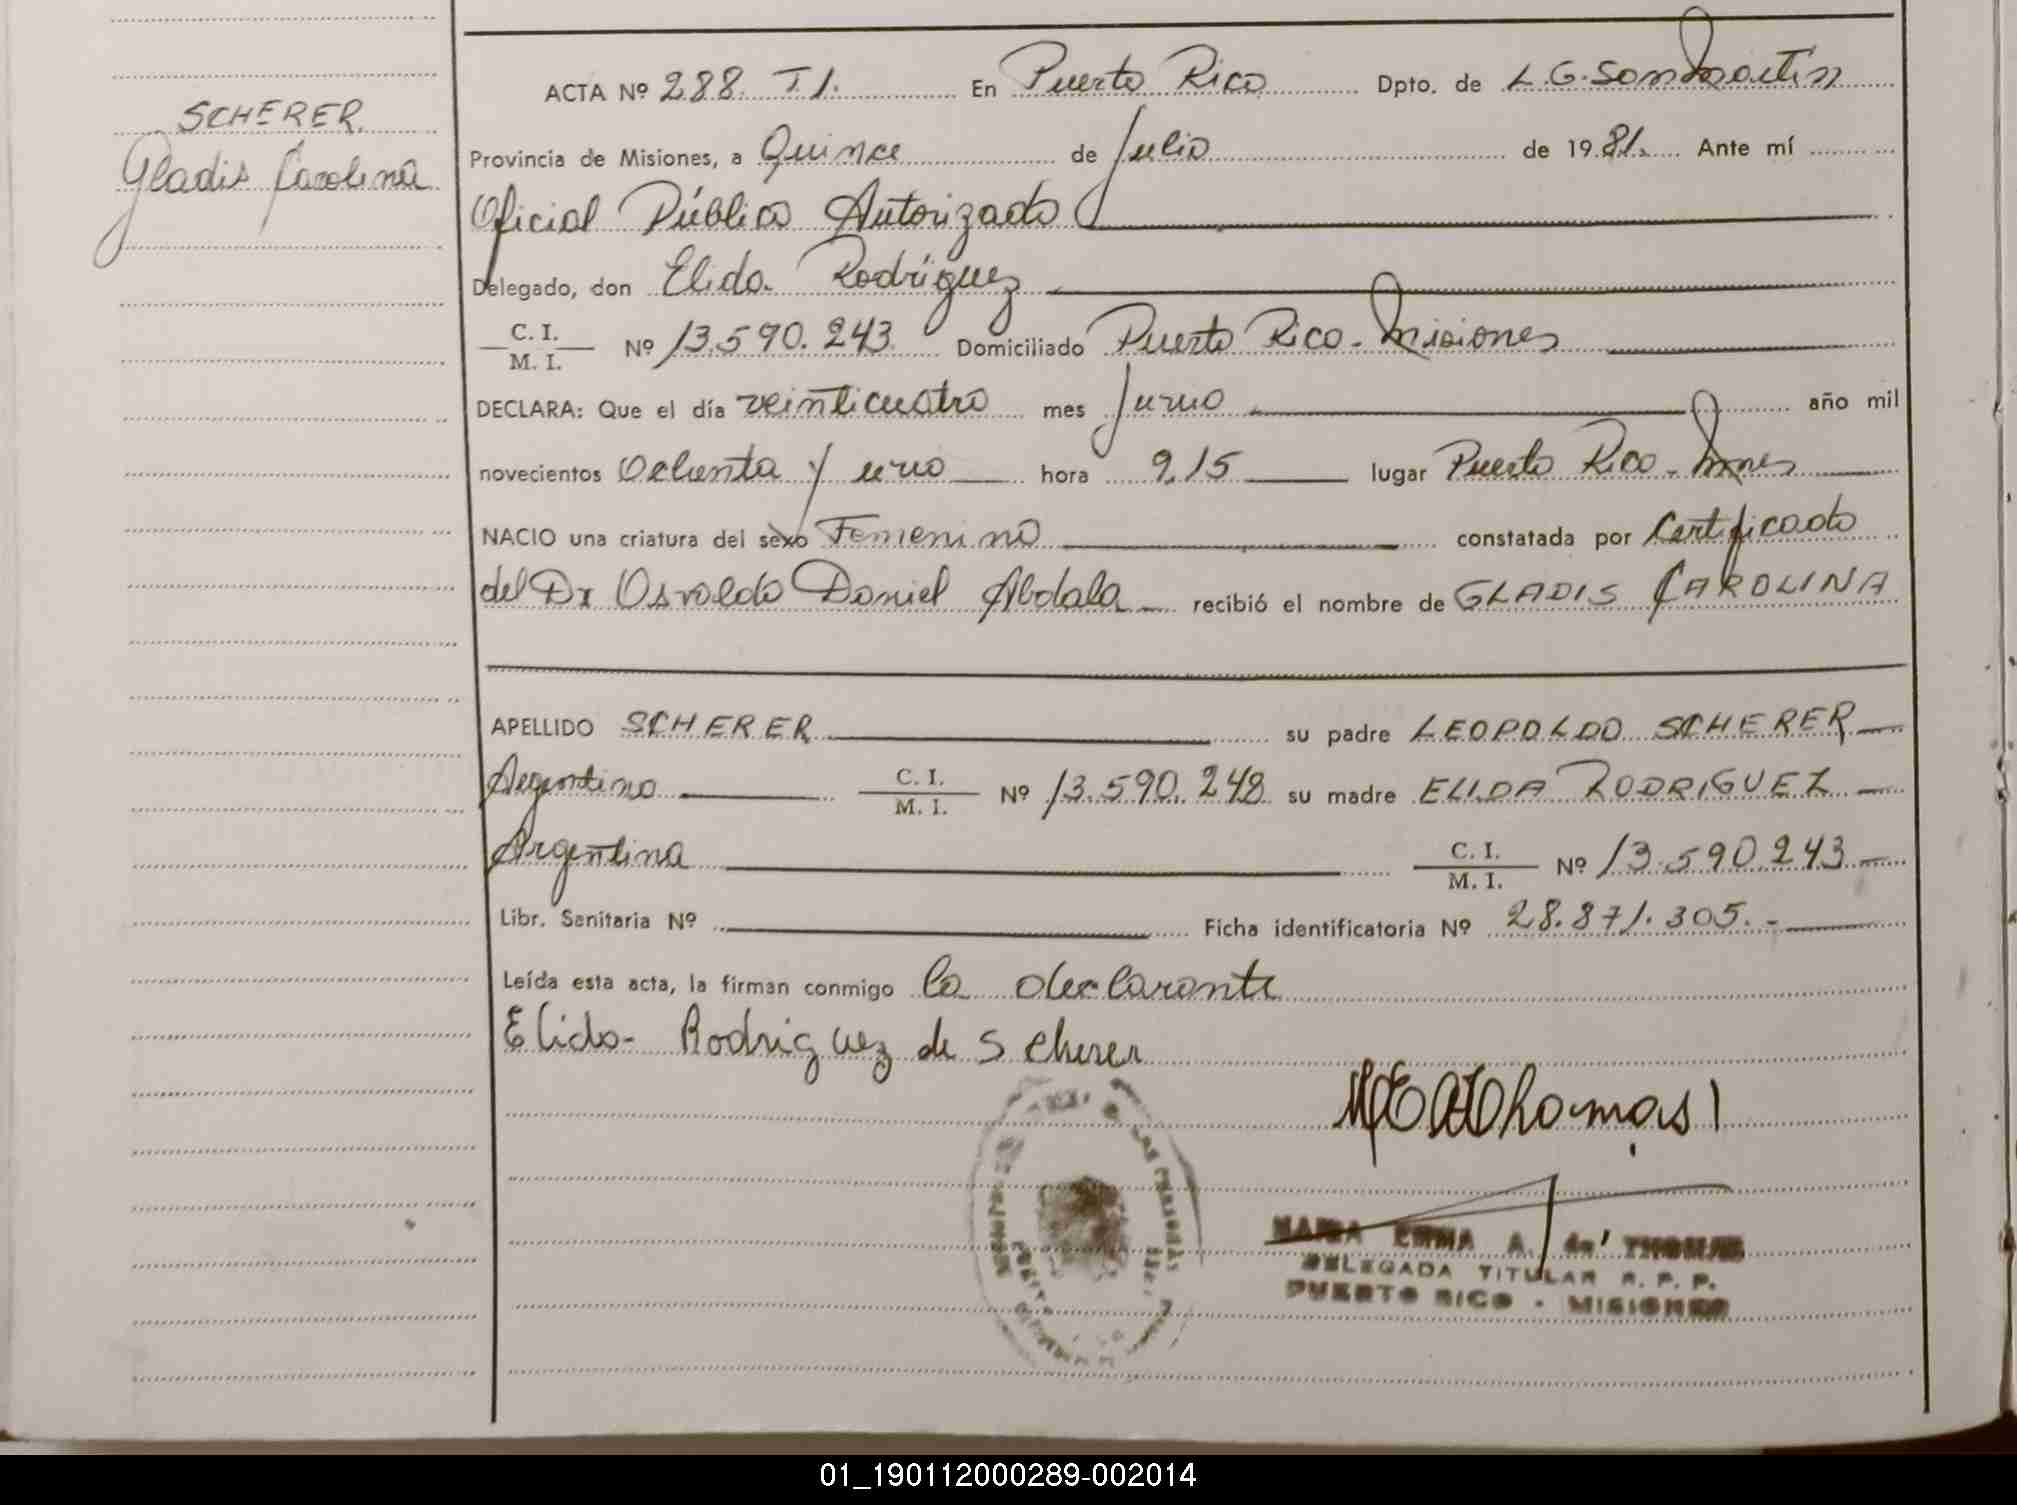 SCHERER
Gladis Carolina
ACTA Nº 288. T I. En Puerto Rico Dpto. de L.G.San Martín
Provincia de Misiones, a Quince de Julio de 1981. Ante mí
Oficial Público Autorizado
Delegado, don Elida Rodríguez
C. I.
M. I. Nº 13.590.243 Domiciliado Puerto Rico - Misiones
DECLARA: Que el día veinticuatro mes Junio año mil
novecientos Ochenta y uno hora 9,15 lugar Puerto Rico - Mnes
NACIO una criatura del sexo Femenino constatada por Certificado
del Dr Osvaldo Daniel Abdala recibió el nombre de GLADIS CAROLINA
APELLIDO SCHERER su padre LEOPOLDO SCHERER
Argentino C. I. M. I. Nº 13.590.248 su madre ELIDA RODRIGUEZ
Argentina C. I. M. I. Nº 13.590.243
Libr. Sanitaria Nº Ficha identificatoria Nº 28.871.305.-
Leída esta acta, la firman conmigo la declarante
Elida Rodriguez de Scherer
Thomas
MARIA EMMA A. de THOMAS
DELEGADA TITULAR R. P. P.
PUERTO RICO - MISIONES
01_190112000289-002014